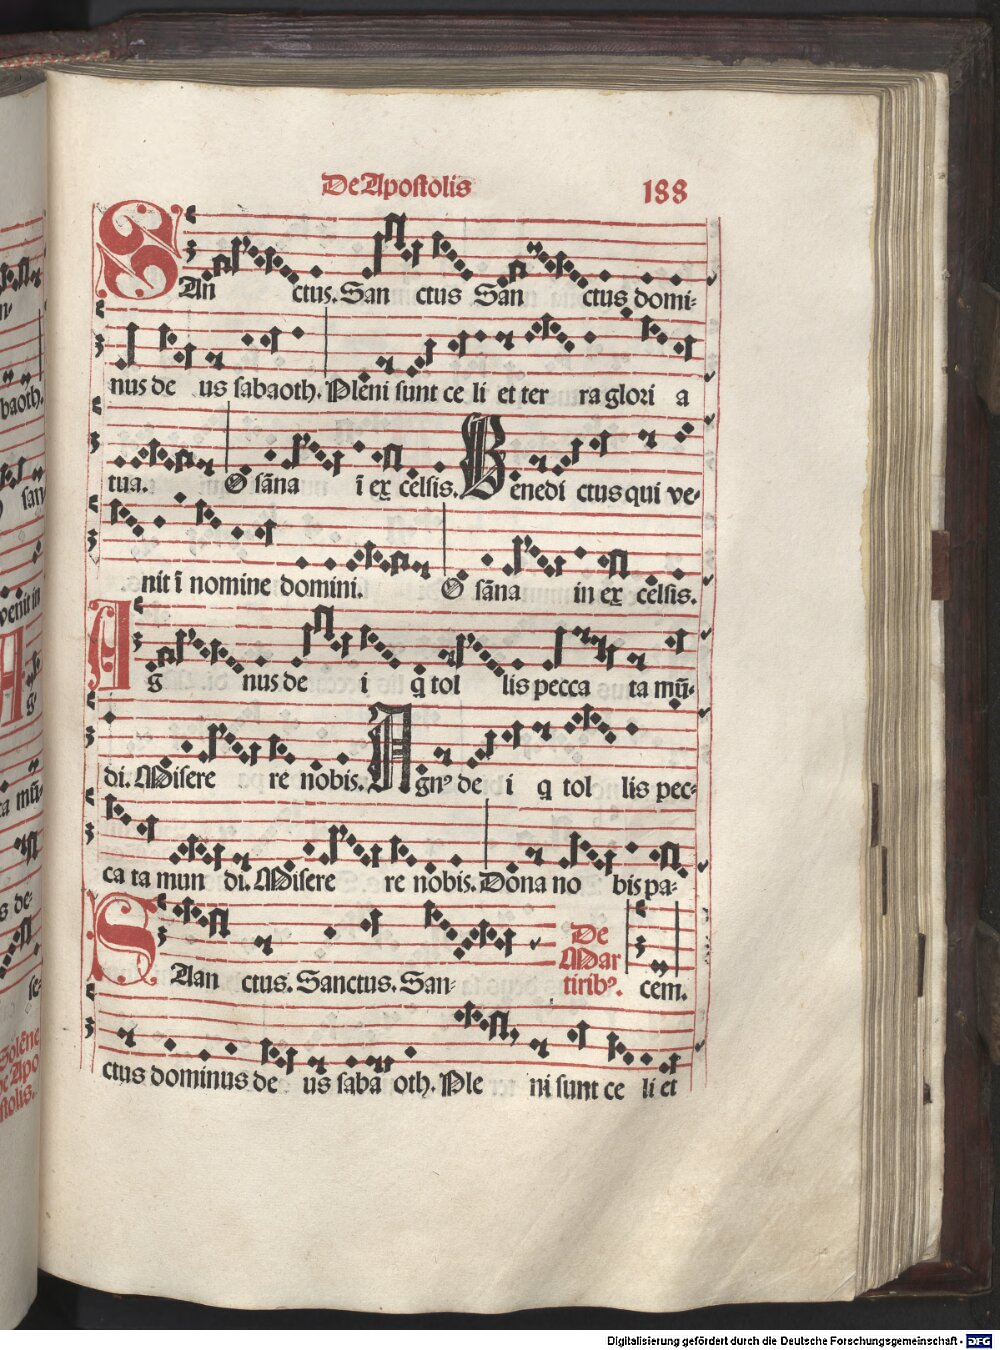 De Apostolis
188
SAn ctus. San ctus San ctus domi-
nus de us sabaoth. Pleni sunt ce li et ter ra glori a
tua. O sāna ī ex celsis. Benedi ctus qui ve-
nit ī nomine domini. O sāna in ex celsis.
Ag nus de i q̄ tol lis pecca ta mū-
di. Misere re nobis. Agnꝰ de i q tol lis pec-
ca ta mun di. Misere re nobis. Dona no bis pa-
De
Mar
tiribꝰ.
cem.
SAan ctus. Sanctus. San-
ctus dominus de us saba oth. Ple ni sunt ce li et
baoth.
san
venit in
ta mū-
s de-
Solēne
de Apo
stolis.
Digitalisierung gefördert durch die Deutsche Forschungsgemeinschaft - DFG